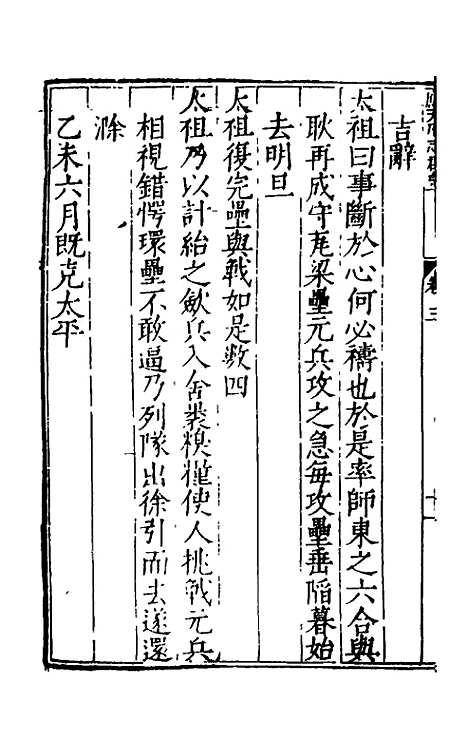 卷三
吉辭
太祖曰事斷於心何必禱也於是率師東之六合與
耿再成守瓦梁壘元兵攻之急每攻壘垂陷暮始
去明旦
太祖復完壘與戰如是数四
太祖乃以計紿之歛兵入舍裝糗糧使人挑戰元兵
相視錯愕環壘不敢逼乃列隊出徐引而去遂還
滁
乙未六月既克太平